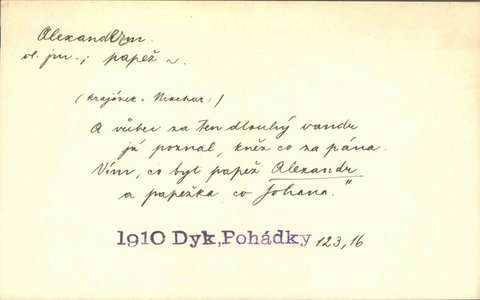 Alexandr m.
vl. jm.; papež ~
(Krajánek - Machar:)
A vůbec za ten dlouhý vandr
já poznal, kněz co za pána.
Vím, co byl papež Alexandr
a papežka co Johana."
1910 Dyk, Pohádky 123,16